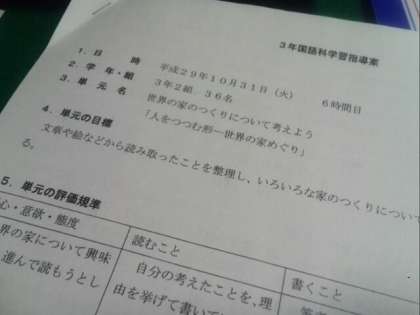 3年国語科学習指導案
1.日 時 平成29年10月31日(火) 6時間目
2.学年・組 3年2組 36名
3.単元名 世界の家のつくりについて考えよう
「人をつつむ形ー世界の家めぐり」
4.単元の目標
文章や絵などから読み取ったことを整理し、いろいろな家のつくりについて
る。
5.単元の評価規準
心・意欲・態度 読むこと 書くこと
界の家について興味 自分の考えたことを、理
進んで読もうとし 由を挙げて書いて